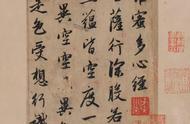 蜜多心經
薩行深般若
蘊皆空度一
異空空不異
是色受想行識